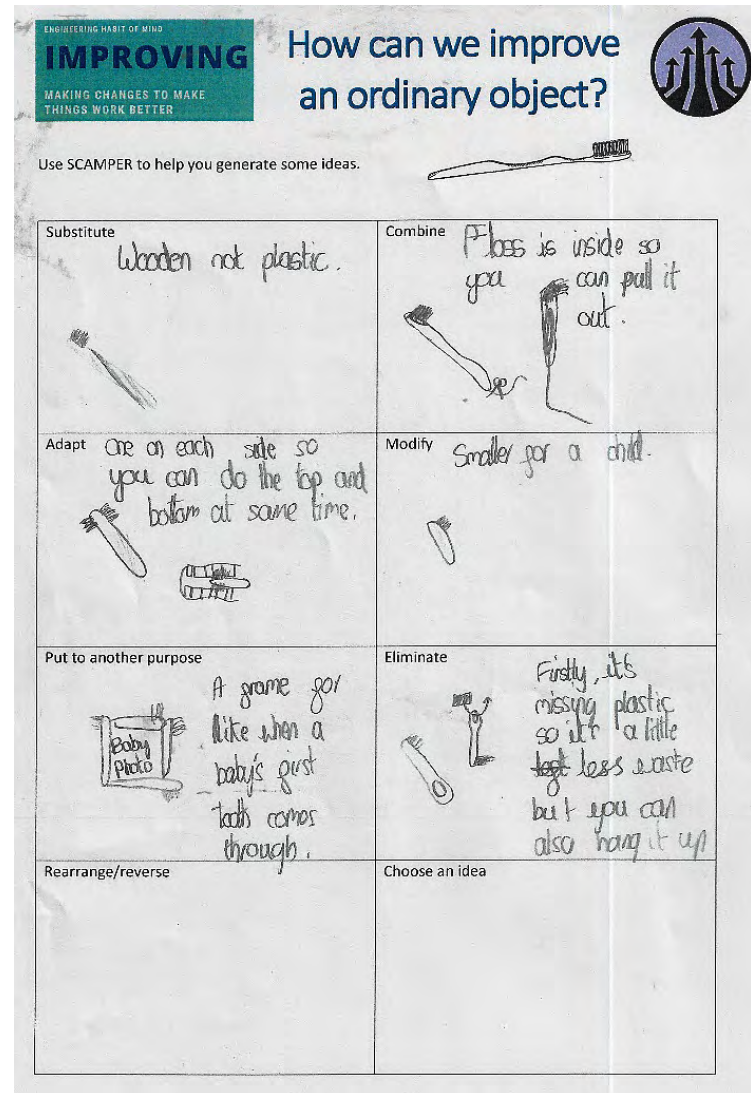 ENGINEERING HABIT OF MIND
IMPROVING
MAKING CHANGES TO MAKE
THINGS WORK BETTER
How can we improve
an ordinary object?
Use SCAMPER to help you generate some ideas.
Substitute
Wooden not plastic.
Combine
Floss is inside so
you can pull it
out.
Adapt
One on each side so
you can do the top and
bottom at same time.
Modify
Smaller for a child.
Put to another purpose
A frame for
like when a
baby's first
tooth comes
through.
Baby
Photo
Eliminate
Firstly, it's
missing plastic
so it a little
less waste
but you can
also hang it up
Rearrange/reverse
Choose an idea